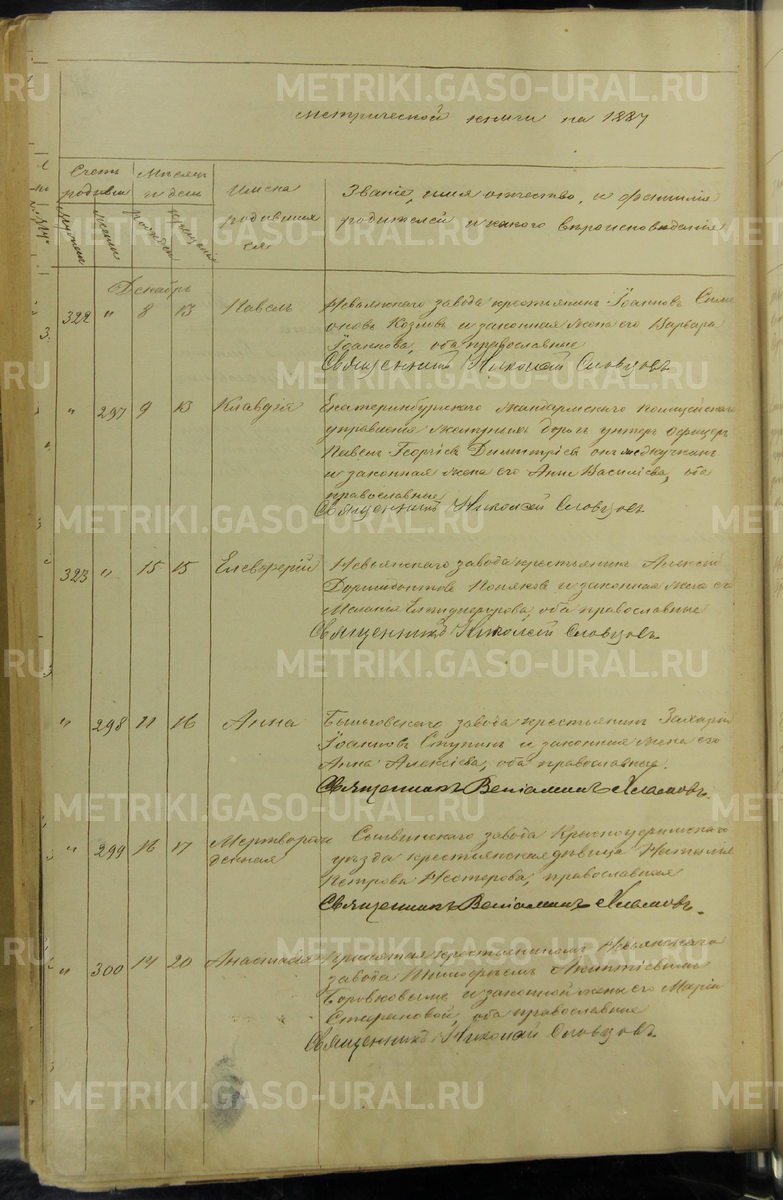 метрической книги на 1887
Счетъ родивш
Мѣсяцъ и день
Имена родившихся
Званіе, имя отчество, и фамилія
родителей и какого вѣроисповѣданія
Декабрь
322 " 8 13 Павелъ
Невьянскаго завода крестьянинъ Іоанновъ
Козловъ и законная жена его Варвара
Іоаннова, оба православные
Священникъ Николай Словцовъ
" 297 9 13 Клавдія
Екатеринбургскаго жандармскаго полицейскаго
управленія дорогъ унтеръ офицеръ
Георгіевъ Димитріевъ
и законная жена его Анна Василіева, оба
православные
Священникъ Николай Словцовъ
323 " 15 15 Елевферій
Невьянскаго завода крестьянинъ Алексій
Дормидонтовъ и законная жена его
Меланія оба православные
Священникъ Николай Словцовъ
" 298 11 16 Анна
Быньговскаго завода крестьянинъ Захарій
Іоанновъ Ступинъ и законная жена его
Анна Алексіева, оба православные.
Священникъ Веніаминъ Хламовъ.
" 299 16 17 Мертворожденная
Сылвинскаго завода Красноуфимскаго
уѣзда крестьянская дѣвица Наталія
Петрова Нестерова, православная
Священникъ Веніаминъ Хламовъ.
" 300 14 20 Анастасія
крестьяниномъ Невьянскаго
завода Тимофѣемъ
Боровковымъ и законной женой его Марія
оба православные
Священникъ Николай Словцовъ
METRIKI.GASO-URAL.RU